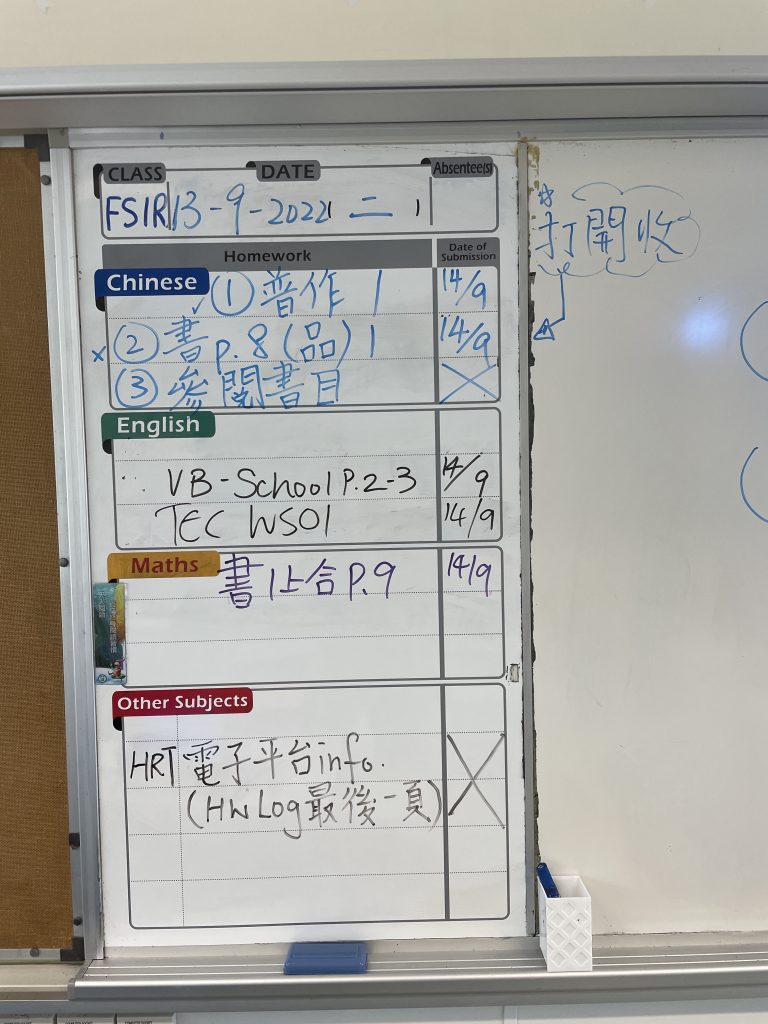 CLASS DATE Absentee(s)
FSIR 13-9-2022 二 1
Homework Date of Submission
Chinese ① 普作 1 14/9
② 書 p.8 (品) 1 14/9
③ 參閱書目
English
VB-School P.2-3 14/9
TEC WS01 14/9
Maths 書1上合P.9 14/9
Other Subjects
HRT 電子平台info.
(HW Log最後一頁)
打開收